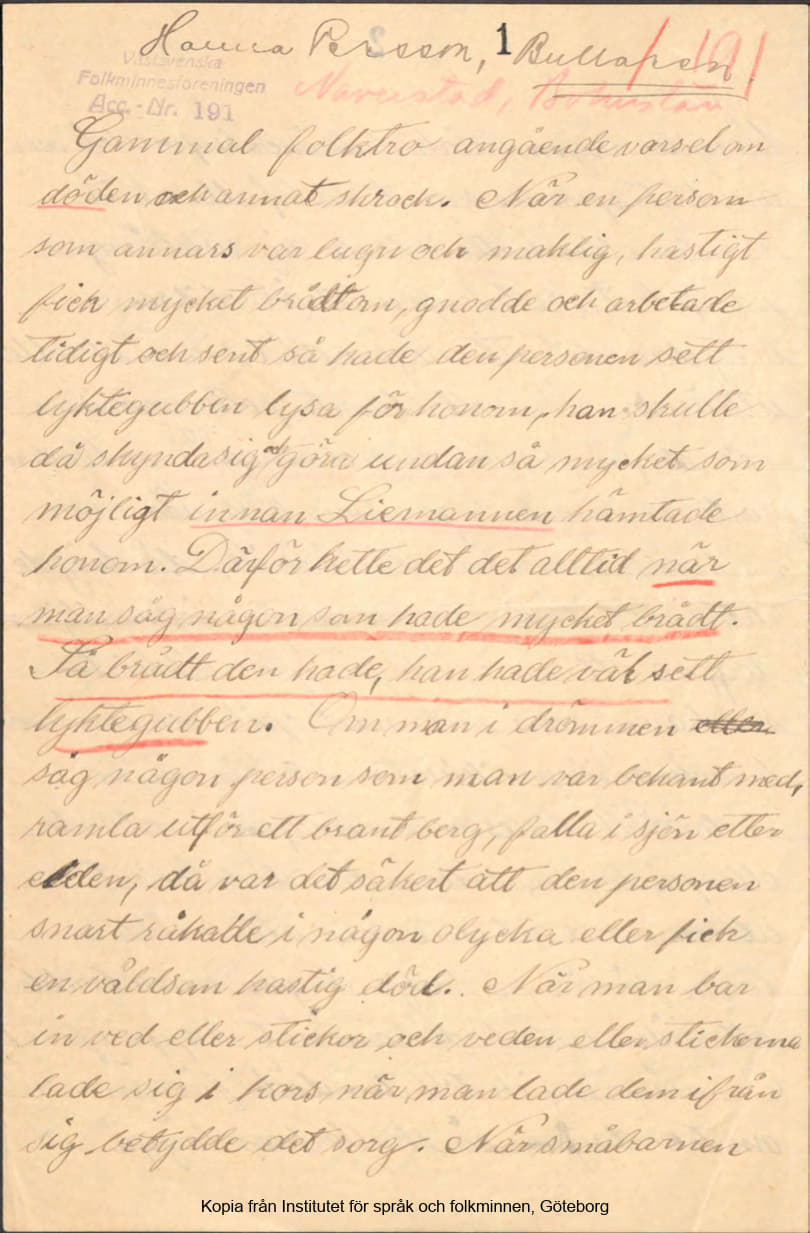 Hanna Persson, 1 Bullaren. 191
Västsvenska
Folkminnesföreningen
Acc.-Nr. 191
Naverstad, Bohuslän
Gammal folktro angående varsel om
döden och annat skrock. När en person
som annars var lugn och maklig, hastigt
fick mycket brådtom, gnodde och arbetade
tidigt och sent så hade den personen sett
lyktegubben lysa för honom, han skulle
då skynda sig och göra undan så mycket som
möjligt innan Liemannen hämtade
honom. Därför hette det det alltid när
man såg någon som hade mycket brådt.
Så brådt den hade, han hade väl sett
lyktegubben. Om man i drömmen eller
såg någon person som man var bekant med,
ramla utför ett brant berg, falla i sjön eller
elden, då var det säkert att den personen
snart råkade i någon olycka eller fick
en våldsam hastig död. När man bar
in ved eller stickor och veden eller stickorna
lade sig i kors när man lade dem ifrån
sig betydde det sorg. När småbarnen
Kopia från Institutet för språk och folkminnen, Göteborg